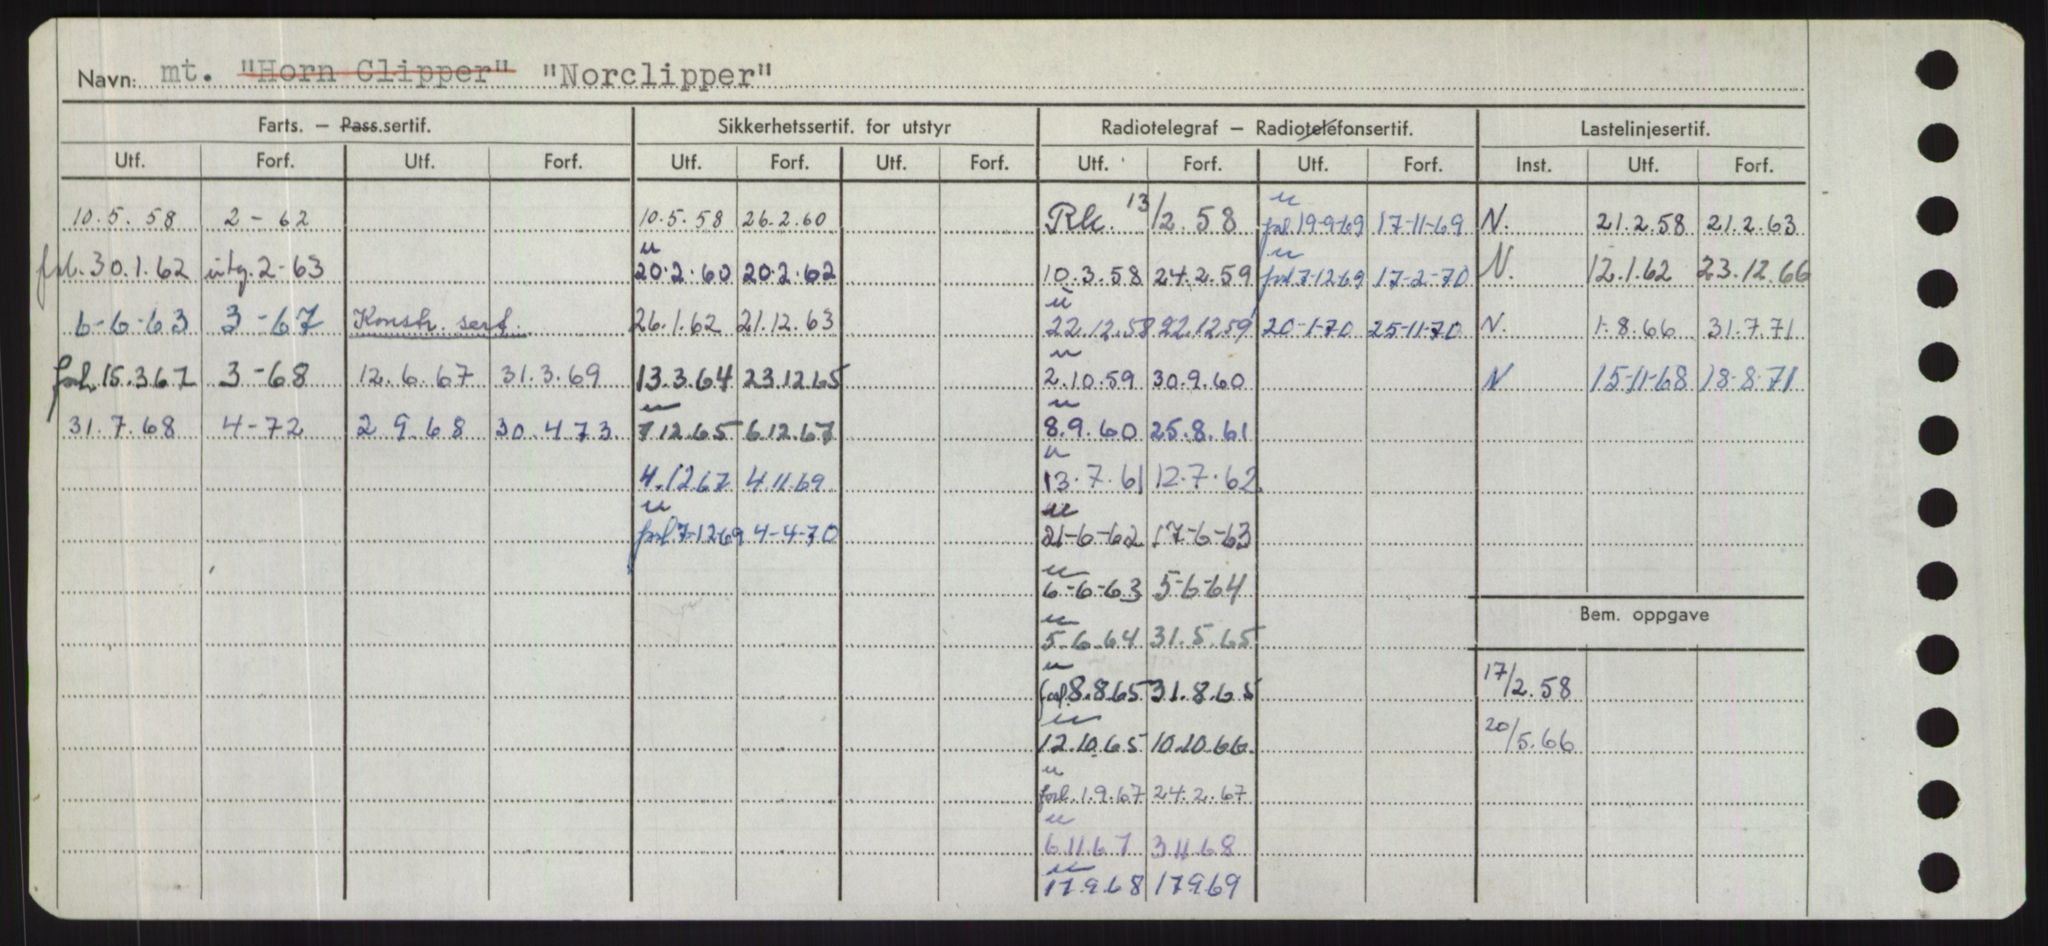 Navn: mt. "Horn Clipper" "Norclipper"
Farts. – Pass.sertif. Sikkerhetssertif. for utstyr Radiotelegraf – Radiotelefonsertif. Lastelinjesertif.
Utf. Forf. Utf. Forf. Utf. Forf. Utf. Forf. Utf. Forf. Utf. Forf. Inst. Utf. Forf.
u
10.5.58 2-62 10.5.58 26.2.60 Rk. 13/2.58 forl. 19-9-69 17-11-69 N. 21.2.58 21.2.63
u u
forl. 30.1.62 utg. 2-63 20.2.60 20.2.62 10.3.58 24.2.59 forl 7-12-69 17-2-70 N. 12.1.62 23.12.66
u
6-6-63 3-67 Konstr. sert. 26.1.62 21.12.63 22.12.58 22.12.59 20-1-70 25-11-70 N. 1.8.66 31.7.71
u
forl. 15.3.67 3-68 12.6.67 31.3.69 13.3.64 23.12.65 2.10.59 30.9.60 N 15-11-68 18-8-71
u u
31.7.68 4-72 2.9.68 30.4.73 7.12.65 6.12.67 8.9.60 25.8.61
u
4.12.67 4.11.69 13.7.61 12.7.62
u u
forl. 7-12-69 4-4-70 21-6-62 17-6-63
u
6-6-63 5-6-64
Bem. oppgave
u
5.6.64 31.5.65
u
forl. 8.8.65 31.8.65 17/2.58
u
12.10.65 10.10.66. 20/5.66
u
forl. 1.9.67 24.2.67
u
6.11.67 3.11.68
u
17.9.68 17.9.69